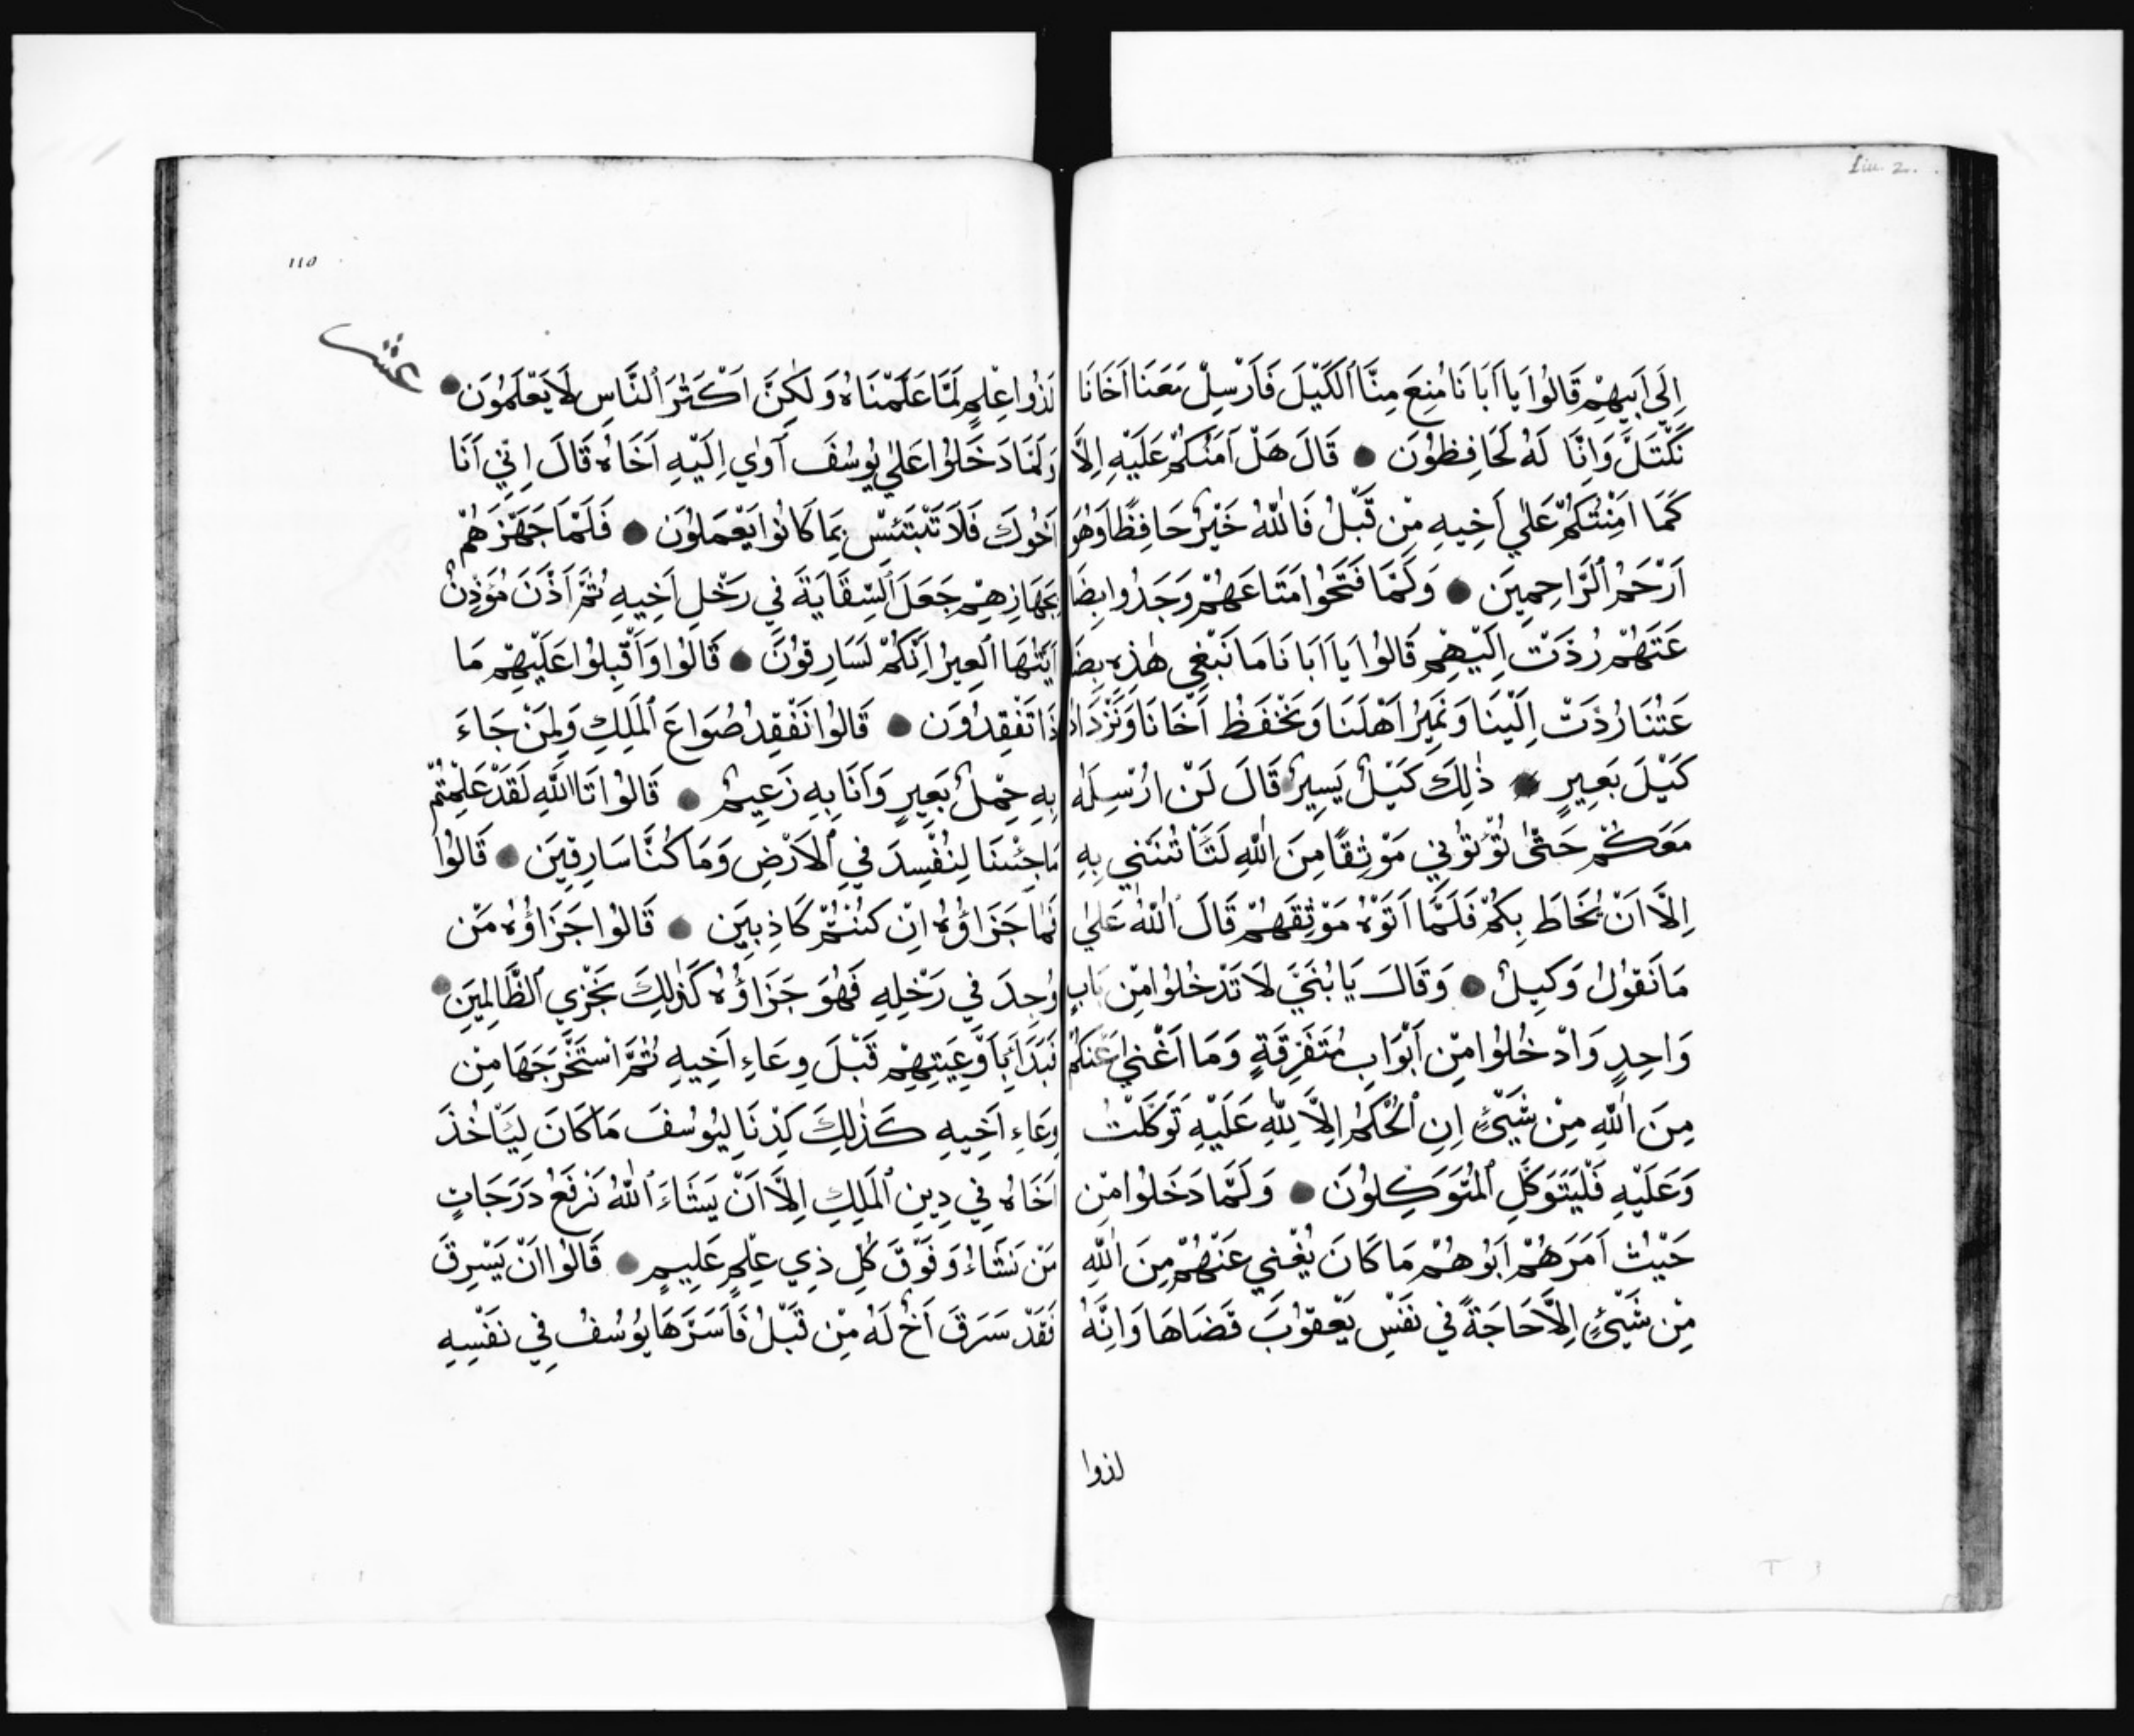 Liu. 2.
اِلَي اَبِيهِمْ قَالُوا يَا اَبَانَا مُنِعَ مِنَّا ٱلكَيْلَ فَاَرْسِلْ مَعَنَا اَخَانَا
نَكْتَلْ وَاِنَّا لَهُ لَحَافِظُوْنَ ● قَالَ هَلْ اَمَنُكُمْ عَلَيْهِ اِلَّا
كَمَا اَمِنْتُكُمْ عَلٰي اَخِيهِ مِنْ قَبْلُ فَاللّٰهُ خَيْرٌ حَافِظًا وَهُوَ
اَرْحَمُ ٱلرَّاحِمِيَن ● وَلَمَّا فَتَحُوا مَتَاعَهُمْ وَجَدُوا بِضَا
عَتَهُمْ رُدَّتْ اِلَيْهِمْ قَالُوا يَا اَبَانَا مَا نَبْغِي هٰذِه بِضَ
عَتُنَا رُدَّتْ اِلَيْنَا وَنَمِيْرُ اَهْلَنَا وَنَحْفَظُ اَخَانَا وَنَزْدَادُ
كَيْلَ بَعِيرٍ ● ذٰلِكَ كَيْلٌ يَسِيرٌ قَالَ لَنْ اُرْسِلَهُ
مَعَكُمْ حَتّٰى تُؤْتُوْنِي مَوْثِقًا مِنَ اللّٰهِ لَتَأْتُنَنِي بِهِ
اِلَّا اَنْ يُحَاطَ بِكُمْ فَلَمَّا اَتَوْهُ مَوْثِقَهُمْ قَالَ ٱللّٰهُ عَلٰي
مَا نَقُوْلُ وَكِيلٌ ● وَقَالَ يَا بُنَيَّ لَا تَدْخُلُوا مِنْ بَابٍ
وَاحِدٍ وَادْخُلُوا مِنْ اَبْوَابٍ مُتَفَرِقَةٍ وَمَا اَغْنٰي عَنْكُمْ
مِنَ اللّٰهِ مِنْ شَيْئٍ اِنِ ٱلْحُكْمُ اِلَّا لِلّٰهِ عَلَيْهِ تَوَكَّلْتُ
وَعَلَيْهِ فَلْيَتَوَكَّلِ ٱلْمُتَوَكِلُوْنَ ● وَلَمَّا دَخَلُوا مِنْ
حَيْثُ اَمَرَهُمْ اَبُوهُمْ مَا كَانَ يُغْنِي عَنْهُمْ مِنَ اللّٰهِ
مِنْ شَيْئٍ اِلَّا حَاجَةً فِي نَفْسِ يَعْقُوْبَ قَضَاهَا وَاِنَّهُ
لذوا
110
عشر
لَذُوا عِلْمٍ لَمَّا عَلَمْنَاهُ وَلٰكِنَّ اَكْثَرَ ٱلنَّاسِ لَا يَعْلَمُوَن ●
وَلَمَّا دَخَلُوا عَلٰي يُوسُفَ آوٰي اِلَيْهِ اَخَاهُ قَالَ اِنِّي اَنَا
اَخُوكَ فَلَا تَبْتَئِسْ بِمَا كَانُوا يَعْمَلُوَن ● فَلَمَّا جَهَّزَهُمْ
بِجَهَازِهِمْ جَعَلَ ٱلسِّقَايَةَ فِي رَحْلِ اَخِيهِ ثُمَّ اَذَّنَ مُؤَذِنٌ
اَيَّتُهَا ٱلعِيرُ اِنَّكُمْ لَسَارِقُوْنَ ● قَالُوا وَاَقْبِلُوا عَلَيْهِمْ مَا
ذَا تَفْقِدُوَن ● قَالُوا نَفْقِدُ صُوَاعَ ٱلْمَلِكِ وَلِمَنْ جَاءَ
بِهِ حِمْلٌ بَعِيرٍ وَاَنَا بِهِ زَعِيمٌ ● قَالُوا تَاللّٰهِ لَقَدْ عَلِمْتُمْ
مَا جِئْنَا لِنُفْسِدَ فِي ٱلاَرْضِ وَمَا كُنَّا سَارِقِيَن ● قَالُوا
فَمَا جَزَاؤُهُ اِنْ كُنْتُمْ كَاذِبِيَن ● قَالُوا جَزَاؤُهُ مَنْ
وُجِدَ فِي رَحْلِهِ فَهُوَ جَزَاؤُهُ كَذٰلِكَ نَجْزِي ٱلظَّالِمِيَن ●
فَبَدَاَ بِاَوْعِيَتِهِمْ قَبْلَ وِعَاءِ اَخِيهِ ثُمَّ اسْتَخْرَجَهَا مِنْ
وِعَاءِ اَخِيهِ كَذٰلِكَ كِدْنَا لِيُوسُفَ مَا كَانَ لِيَاْخُذَ
اَخَاهُ فِي دِينِ ٱلْمَلِكِ اِلَّا اَنْ يَشَاءَ ٱللّٰهُ نَرْفَعُ دَرَجَاتٍ
مَنْ نَشَاءُ وَفَوْقَ كُلِ ذِي عِلْمٍ عَلِيمٍ ● قَالُوا اَنْ يَسْرِقَ
فَقَدْ سَرَقَ اَخٌ لَهُ مِنْ قَبْلُ فَاَسَرَّهَا يُوسُفُ فِي نَفْسِهِ